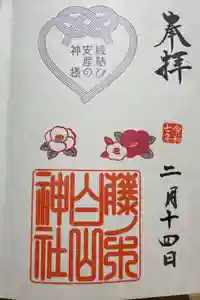 奉拝
令和
七年
二月十四日
縁結び
安産の
神様
勝手
白山
神社